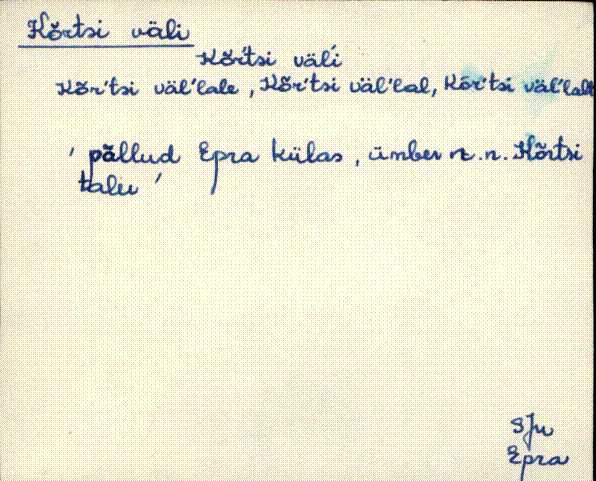 Kõrtsi väli
Kõr'tsi väli
Kõr'tsi väl'lale, Kõr'tsi väl'lal, Kõr'tsi väl'lalt
' põllud Epra külas, ümber n.n. Kõrtsi
talu '
SJn
Epra